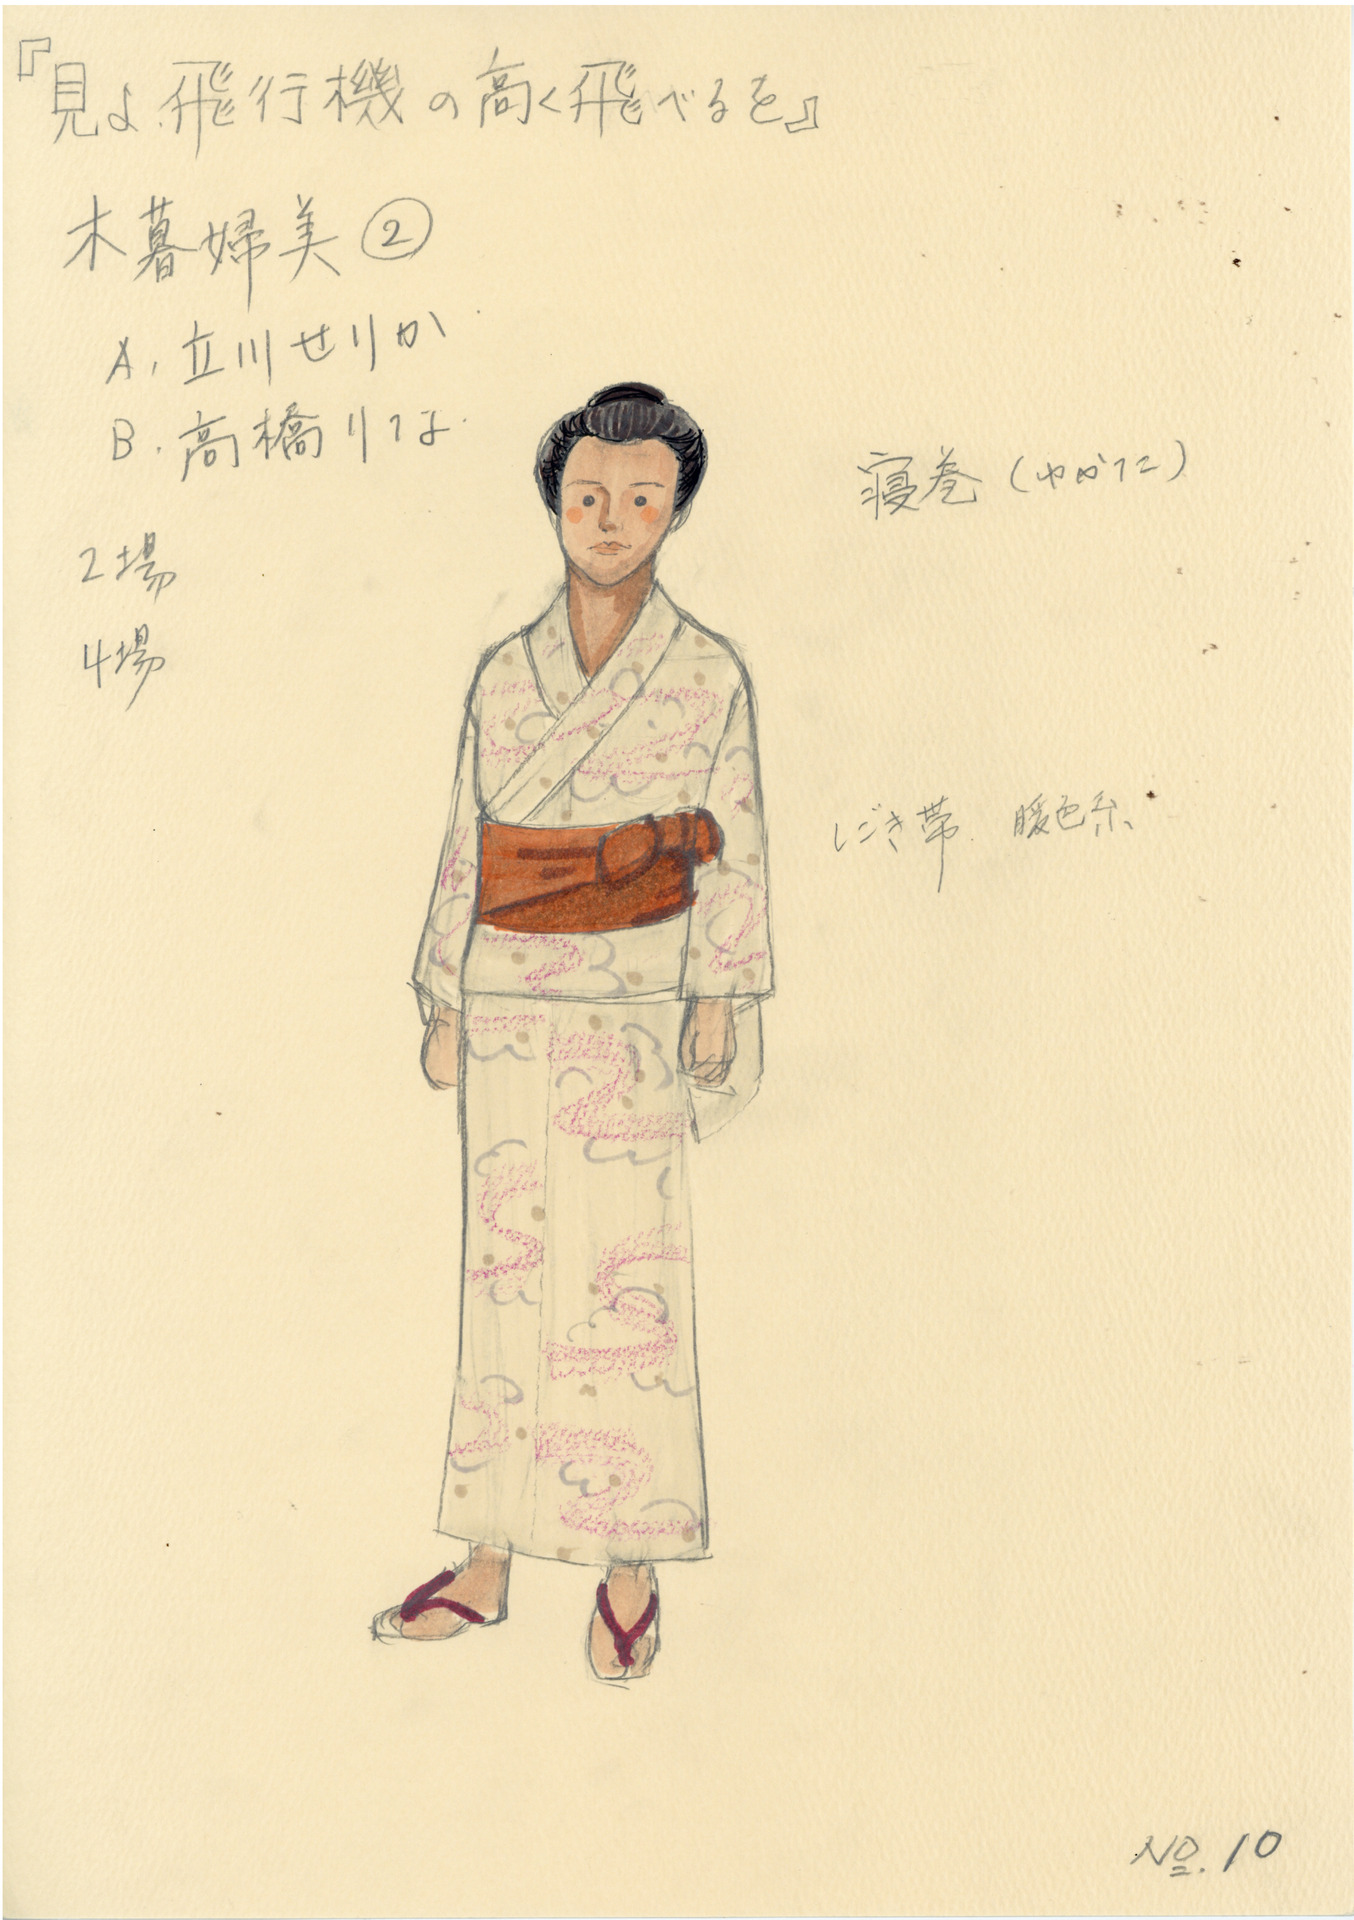 『見よ飛行機の高く飛べるを』
木暮婦美②
A. 立川せりか
B. 高橋りな
2場
4場
寝巻(ゆかた)
しごき帯 暖色系
No. 10